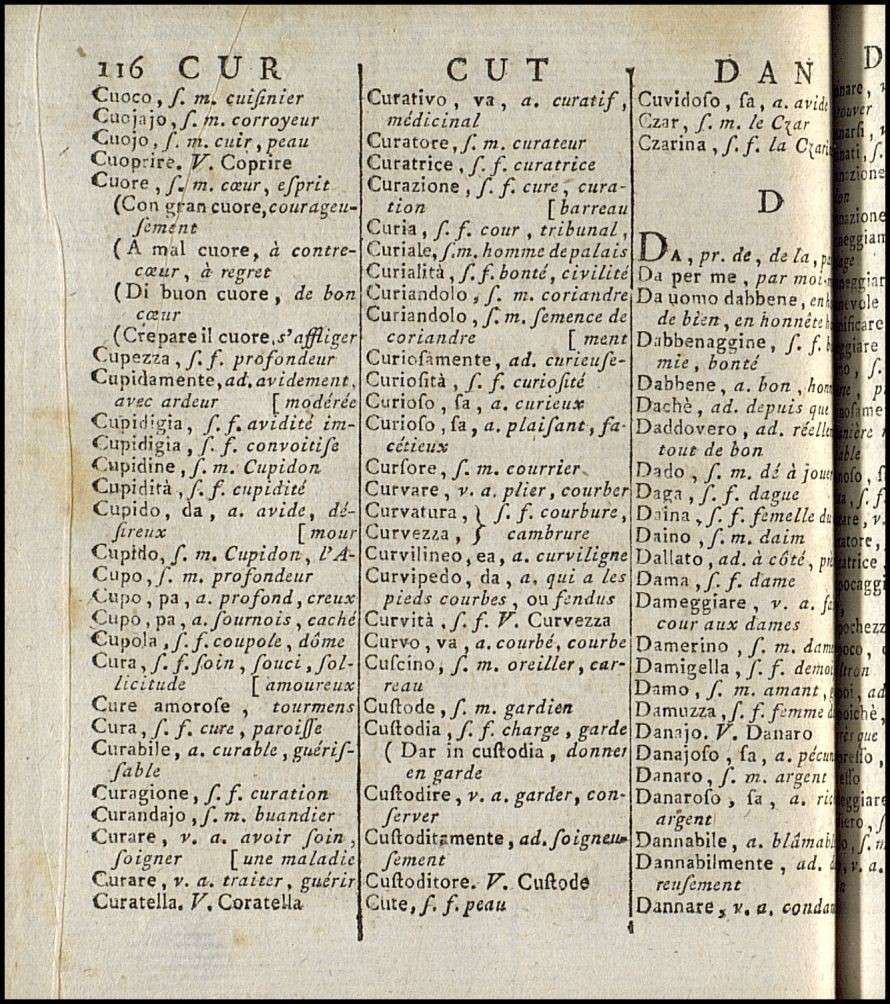 116 CUR
Cuoco, ſ. m. cuiſinier
Cuojajo, ſ. m. corroyeur
Cuojo, ſ. m. cuir, peau
Cuoprire. V. Coprire
Cuore, ſ. m. cœur, eſprit
(Con gran cuore, courageu-
ſement
(A mal cuore, à contre-
cœur, à regret
(Di buon cuore, de bon
cœur
(Crepare il cuore, s'affliger
Cupezza, ſ. f. profondeur
Cupidamente, ad. avidement,
avec ardeur [modérée
Cupidigia, ſ. f. avidité im-
Cupidigia, ſ. f. convoitiſe
Cupidine, ſ. m. Cupidon
Cupidità, ſ. f. cupidité
Cupido, da, a. avide, dé-
ſireux [mour
Cupido, ſ. m. Cupidon, l'A-
Cupo, ſ. m. profondeur
Cupo, pa, a. profond, creux
Cupo, pa, a. ſournois, caché
Cupola, ſ. f. coupole, dôme
Cura, ſ. f. ſoin, ſouci, ſol-
licitude [amoureux
Cure amoroſe, tourmens
Cura, ſ. f. cure, paroiſſe
Curabile, a. curable, guériſ-
ſable
Curagione, ſ. f. curation
Curandajo, ſ. m. buandier
Curare, v. a. avoir ſoin,
ſoigner [une maladie
Curare, v. a. traiter, guérir
Curatella. V. Coratella
CUT
Curativo, va, a. curatif,
médicinal
Curatore, ſ. m. curateur
Curatrice, ſ. f. curatrice
Curazione, ſ. f. cure, cura-
tion [barreau
Curia, ſ. f. cour, tribunal,
Curiale, ſ. m. homme de palais
Curialità, ſ. f. bonté, civilité
Curiandolo, ſ. m. coriandre
Curiandolo, ſ. m. ſemence de
coriandre [ment
Curioſamente, ad. curieuſe-
Curioſità, ſ. f. curioſité
Curioſo, ſa, a. curieux
Curioſo, ſa, a. plaiſant, fa-
cétieux
Curſore, ſ. m. courrier
Curvare, v. a. plier, courber
Curvatura, } ſ. f. courbure,
Curvezza, } cambrure
Curvilineo, ea, a. curviligne
Curvipedo, da, a. qui a les
pieds courbes, ou fendus
Curvità, ſ. f. V. Curvezza
Curvo, va, a. courbé, courbe
Cuſcino, ſ. m. oreiller, car-
reau
Cuſtode, ſ. m. gardien
Cuſtodia, ſ. f. charge, garde
(Dar in cuſtodia, donner
en garde
Cuſtodire, v. a. garder, con-
ſerver
Cuſtoditamente, ad. ſoigneu-
ſement
Cuſtoditore. V. Cuſtode
Cute, ſ. f. peau
DAN
Cuvidoſo, ſa, a. avide
Czar, ſ. m. le Czar
Czarina, ſ. f. la
D
DA, pr. de, de la,
Da per me, par moi-
Da uomo dabbene, en
de bien, en honnête
Dabbenaggine, ſ. f.
mie, bonté
Dabbene, a. bon,
Dachè, ad. depuis que
Daddovero, ad.
tout de bon
Dado, ſ. m. dé à
Daga, ſ. f. dague
Daina, ſ. f. femelle du
Daino, ſ. m. daim
Dallato, ad. à côté,
Dama, ſ. f. dame
Dameggiare, v. a.
cour aux dames
Damerino, ſ. m.
Damigella, ſ. f.
Damo, ſ. m. amant,
Damuzza, ſ. f. femme
Danajo. V. Danaro
Danajoſo, ſa, a.
Danaro, ſ. m. argent
Danaroſo, ſa, a.
argent
Dannabile, a.
Dannabilmente, ad.
reuſement
Dannare, v. a.